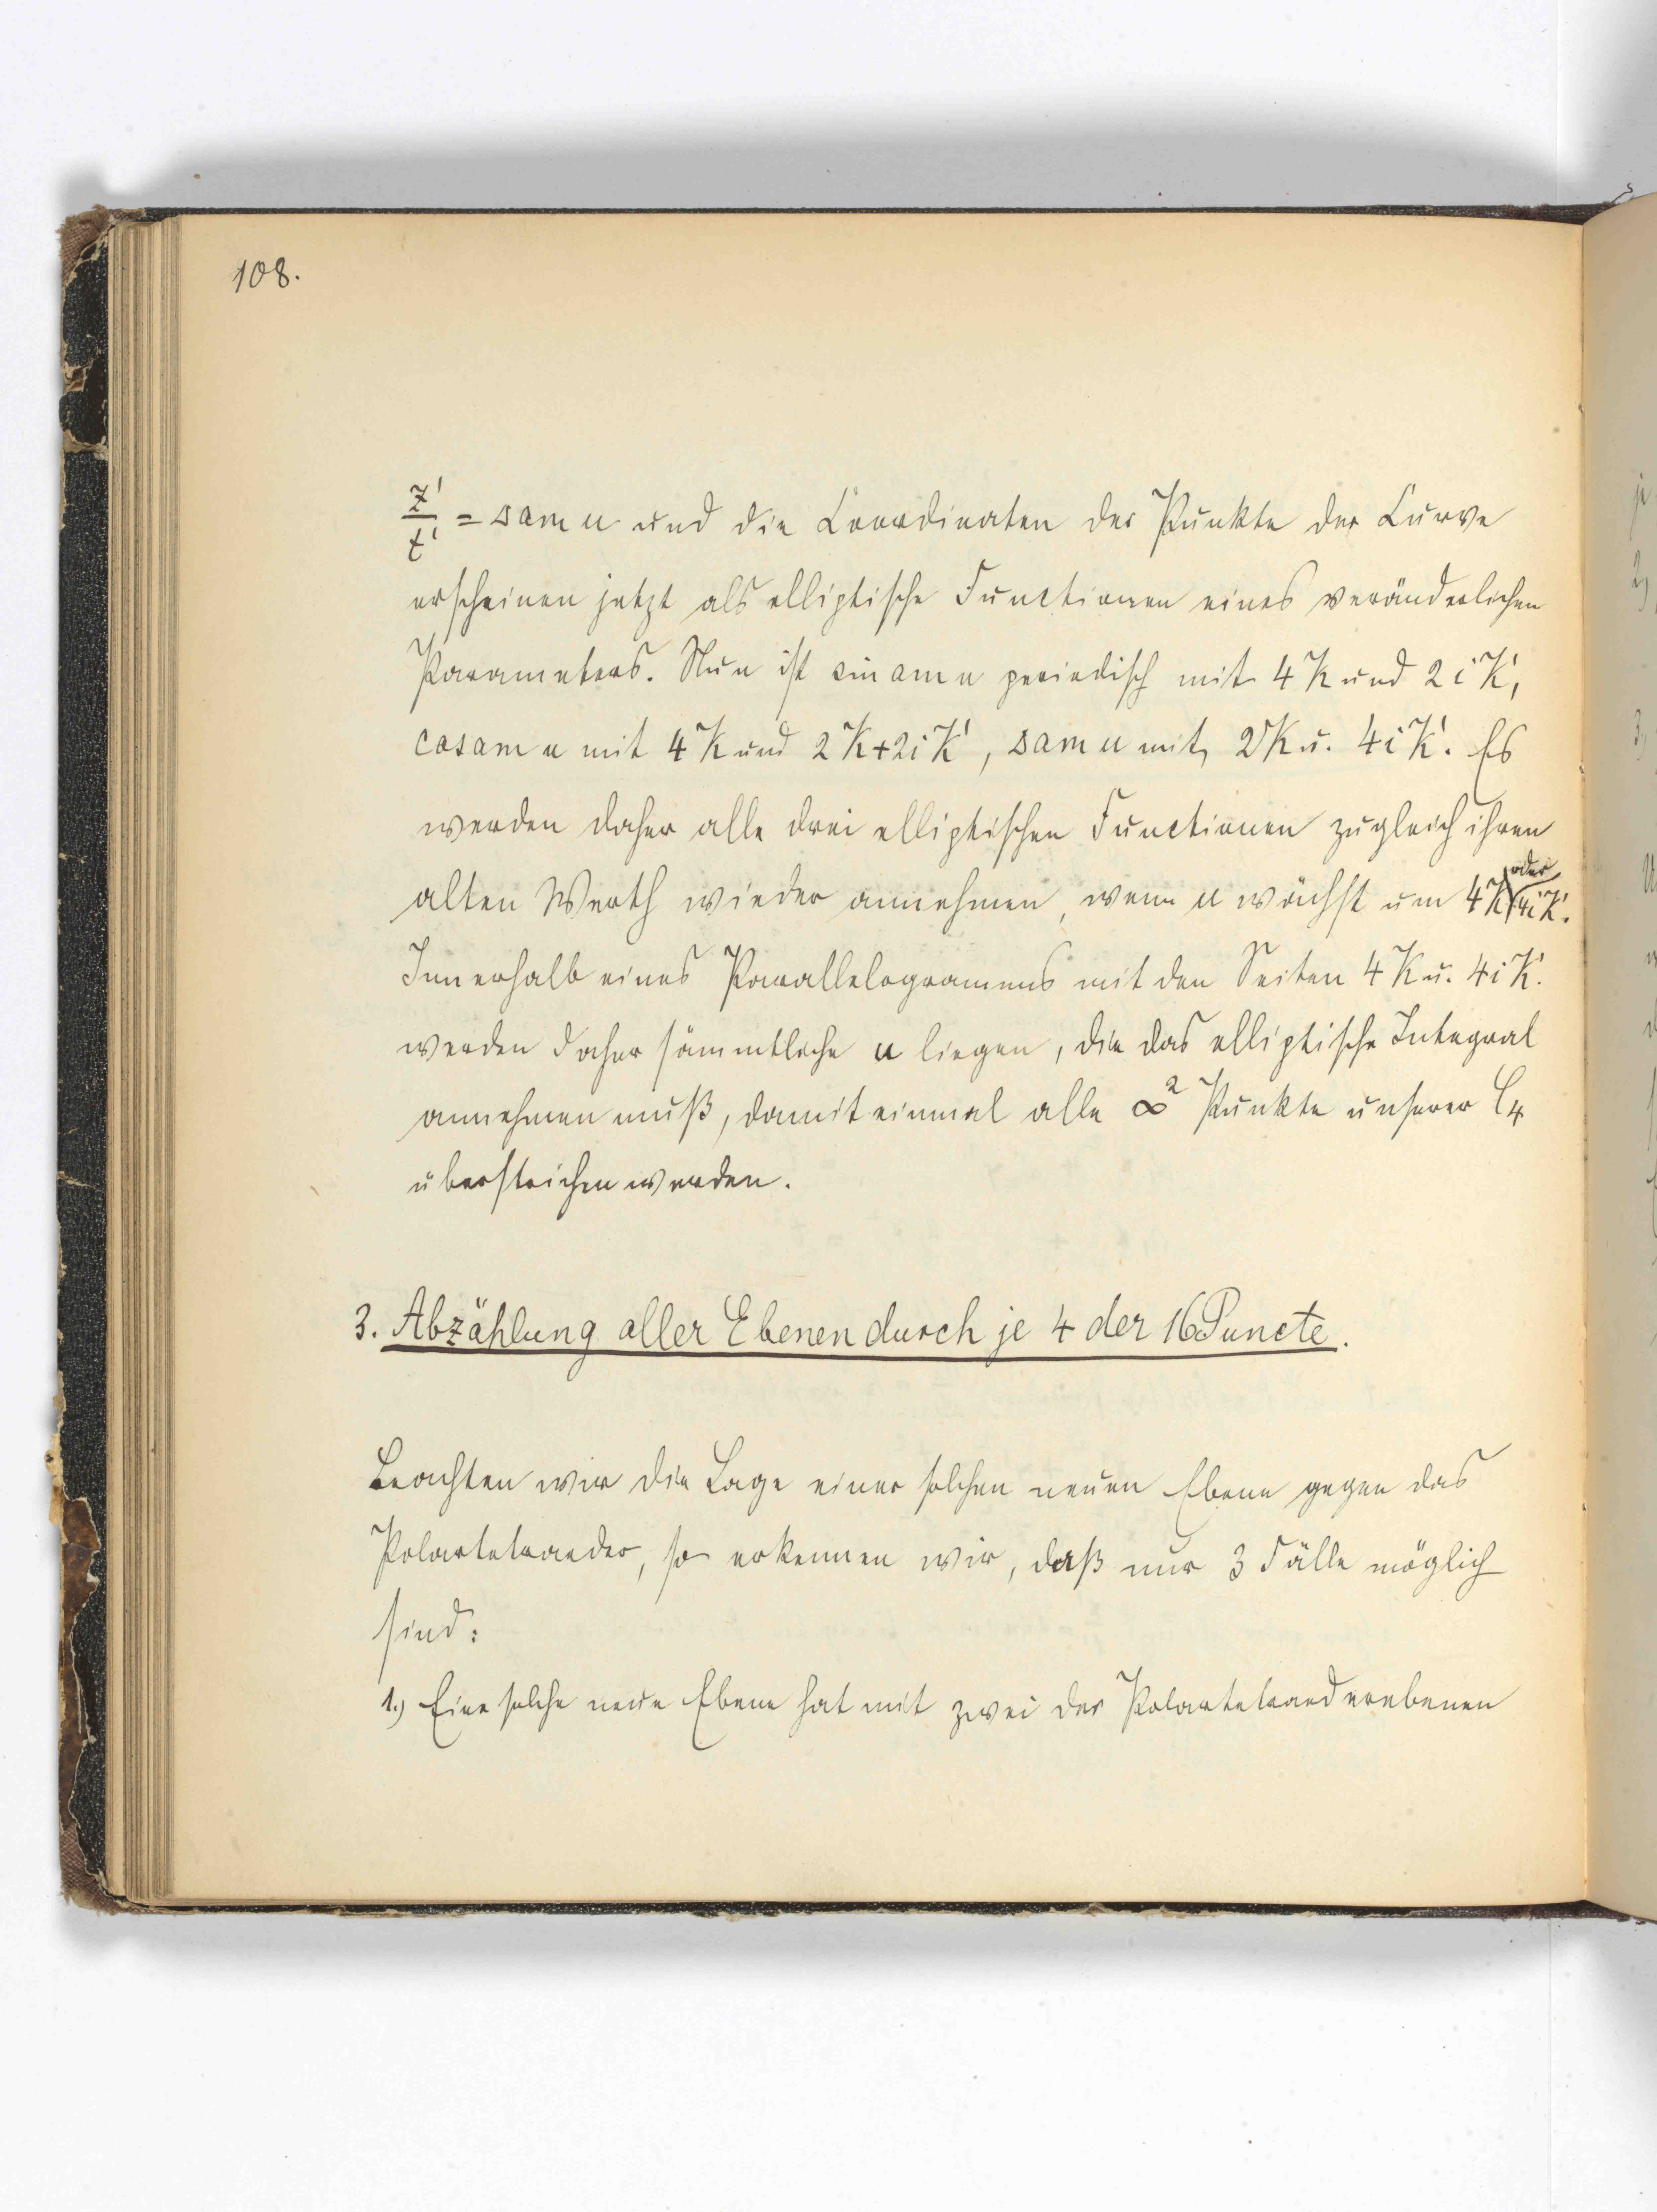 108.
z'/t' = Δ am u und die Coordinaten der Punkte der Curve
erscheinen jetzt als elliptische Functionen eines veränderlichen
Parameters. Nun ist sin am u periodisch mit 4K und 2iK',
cos am u mit 4K und 2K+2iK', Δ am u mit 2K u. 4iK'. Es
werden daher alle drei elliptischen Functionen zugleich ihren
alten Werth wieder annehmen, wenn u wächst um 4K oder 4iK'.
Innerhalb eines Parallelogramms mit den Seiten 4K u. 4iK'.
werden daher sämmtliche u liegen, die das elliptische Integral
annehmen muß, damit einmal alle ∞² Punkte unserer C₄
überstrichen werden.
3. Abzählung aller Ebenen durch je 4 der 16 Puncte.
Beachten wir die Lage einer solchen neuen Ebene gegen das
Polartetraeder, so erkennen wir, daß nur 3 Fälle möglich
sind:
1.) Eine solche neue Ebene hat mit zwei der Polartetraederebenen